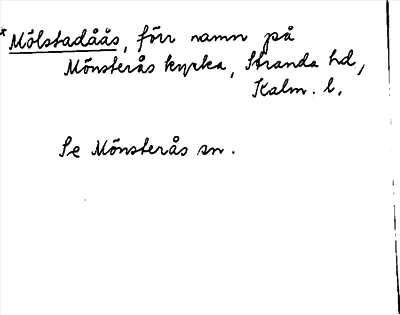 *Mölstadåås, förr namn på
Mönsterås kyrka, Stranda hd,
Kalm. l.
Se Mönsterås sn.